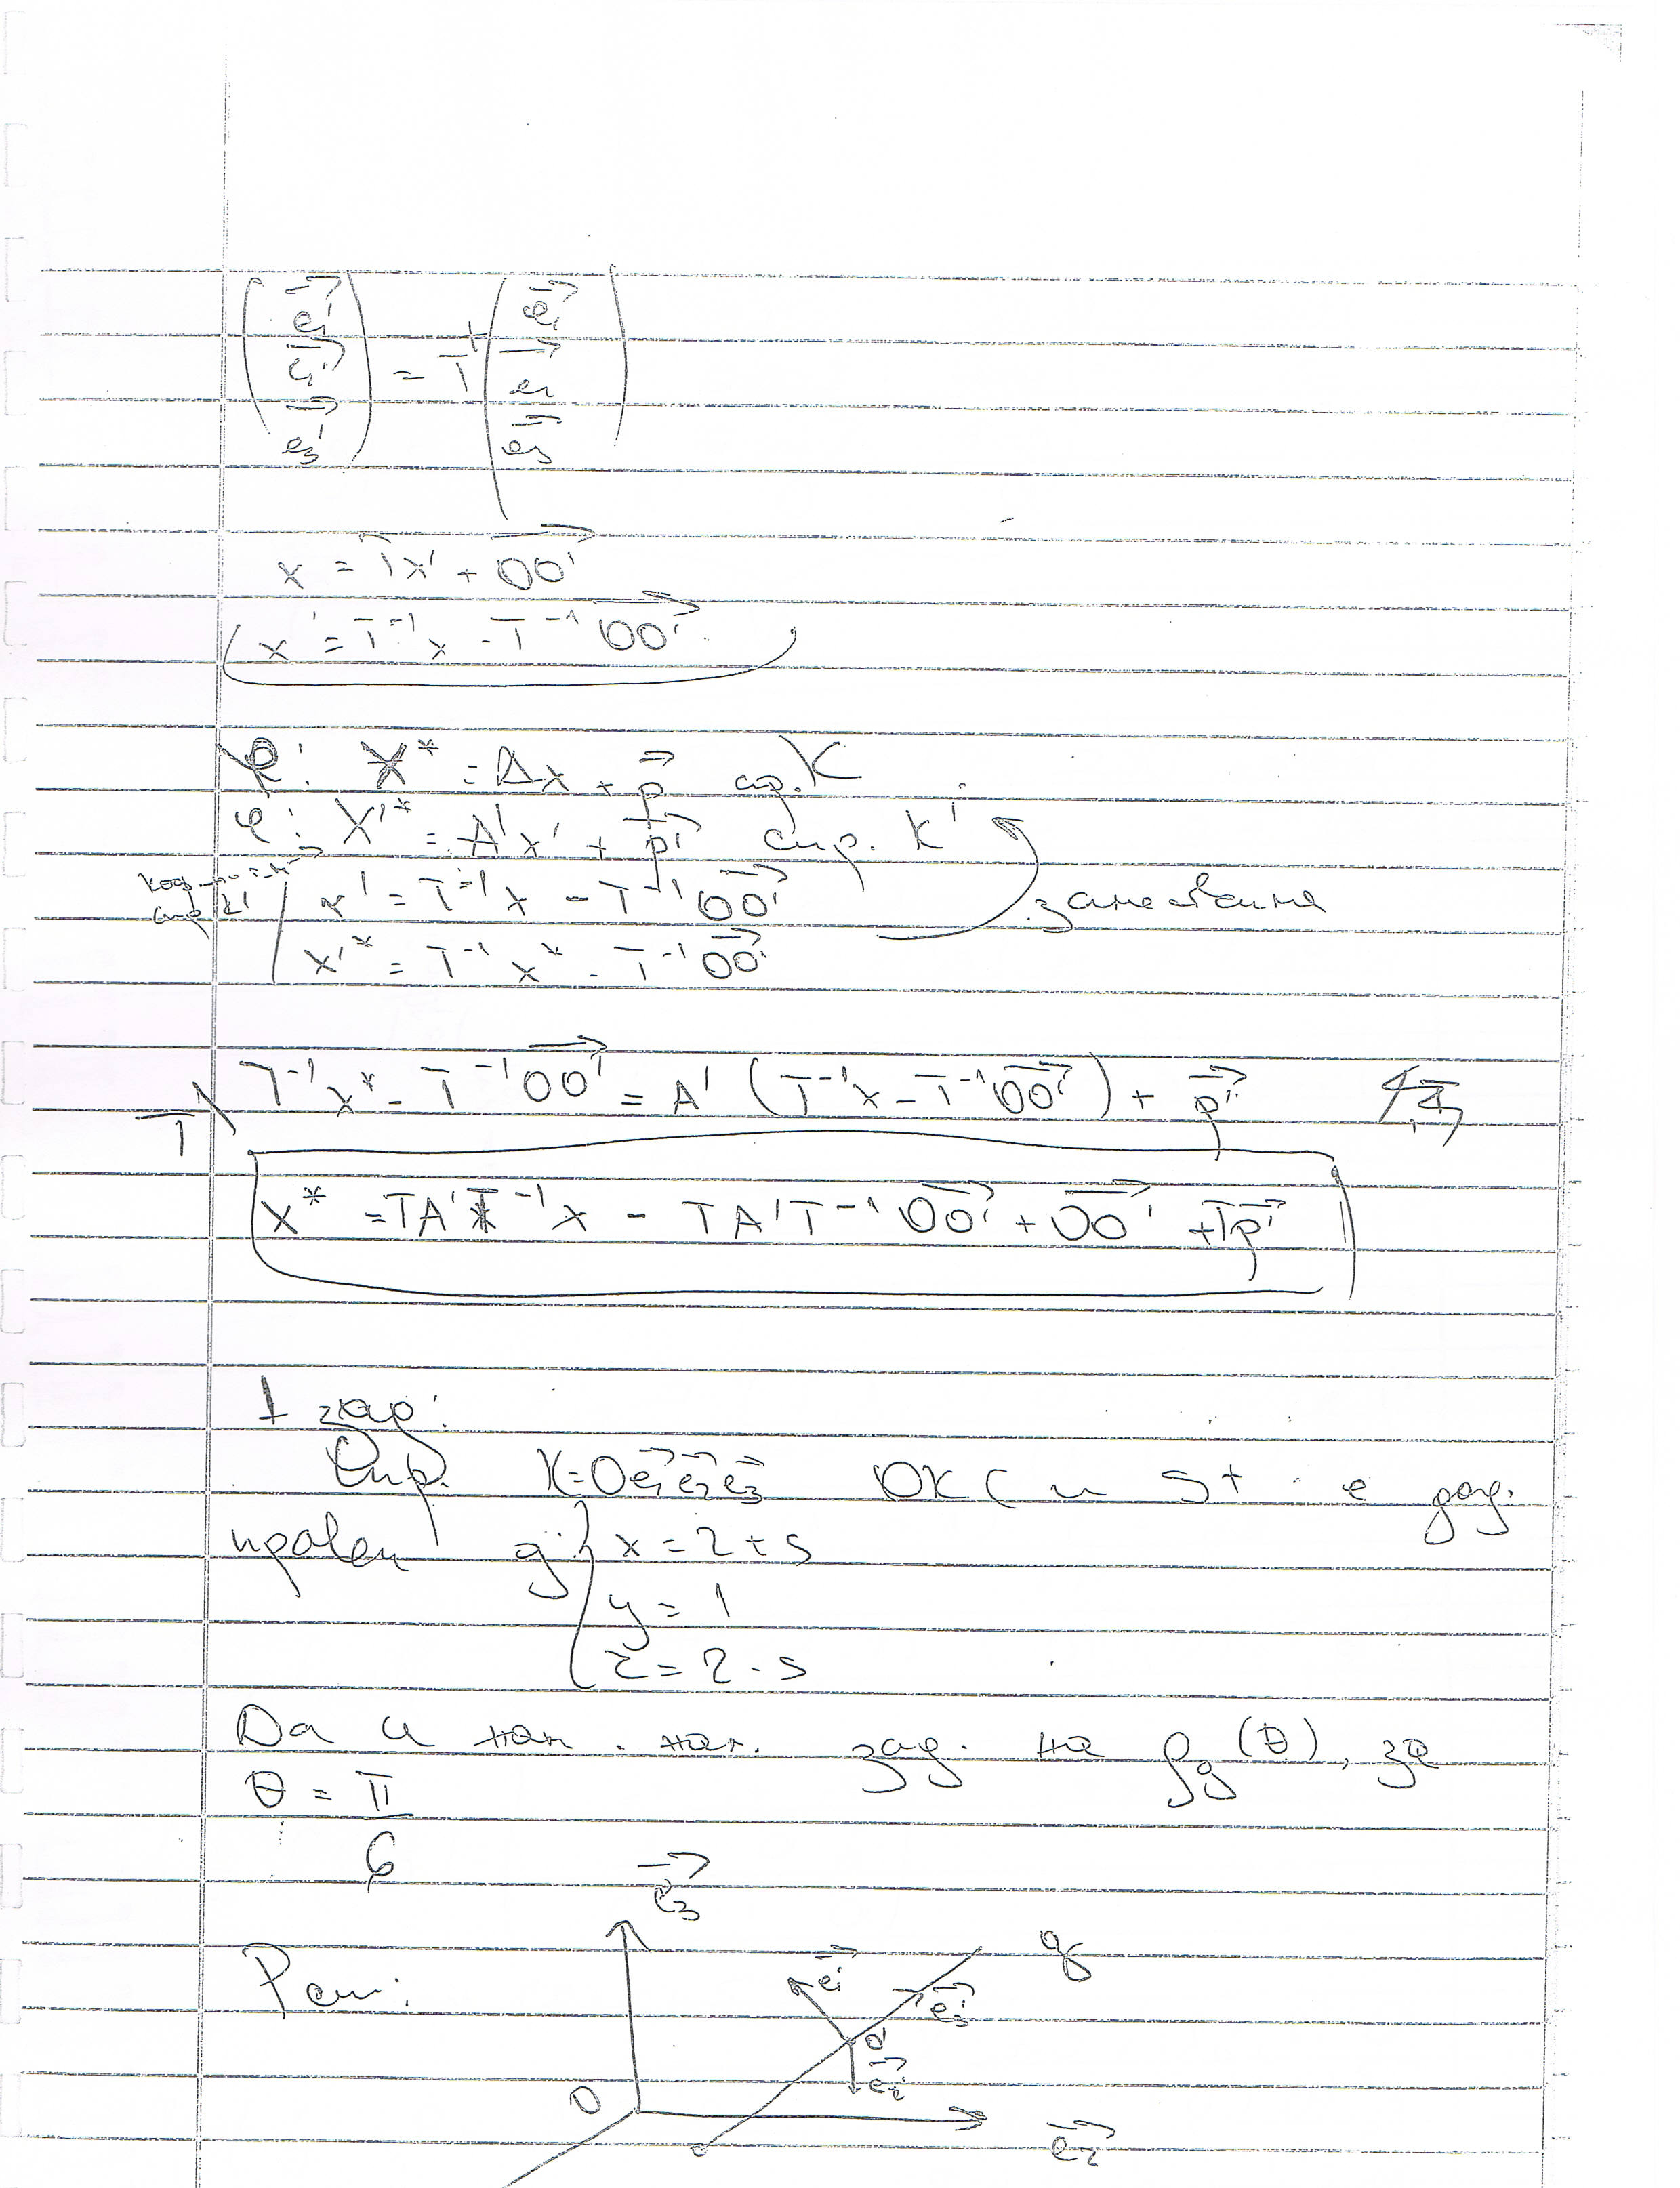 (e₁'→ e₂'→ e₃'→) = Tᵗ (e₁→ e₂→ e₃→)
x = Tx' + OO'→
x' = T⁻¹x - T⁻¹ OO'→
φ: X* = Ax + p→ спр. K
φ: X'* = A'x' + p'→ спр. K'
x' = T⁻¹x - T⁻¹ OO'→ заместваме
x'* = T⁻¹x* - T⁻¹ OO'→
T \ T⁻¹x* - T⁻¹ OO'→ = A' (T⁻¹x - T⁻¹ OO'→) + p'→
x* = TA'T⁻¹x - TA'T⁻¹ OO'→ + OO'→ + Tp'→
1 зад:
Спр. K=Oe₁→e₂→e₃→ ОКС и S+ е дад.
права g: { x = 2+s
y = 1
z = 2-s
Да се нам. ан. зад. на ρg(θ), за
θ = π/6
e₃→
Реш:
g
e₁'→
e₃'→
O'
e₂'→
O
e₂→